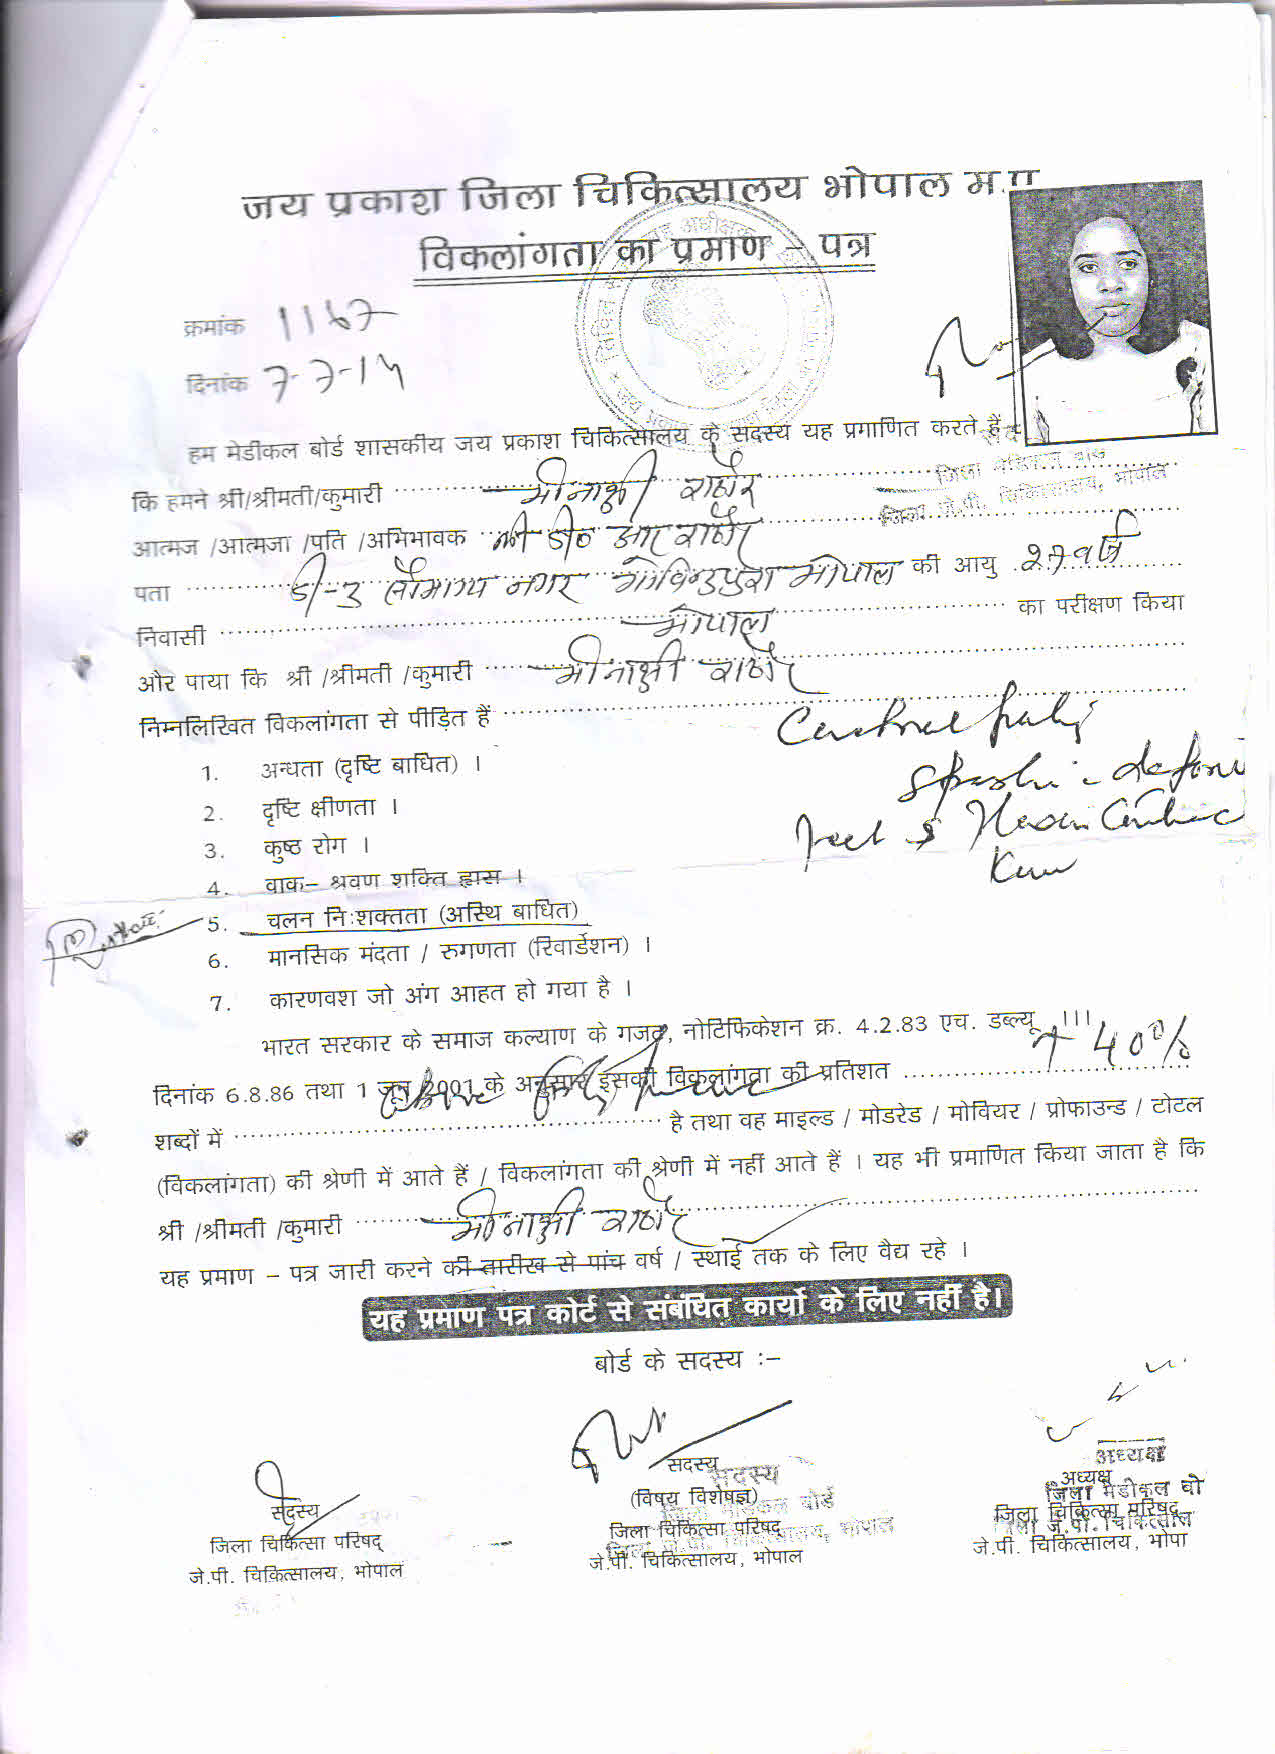 जय प्रकाश जिला चिकित्सालय भोपाल म.प्र.
विकलांगता का प्रमाण – पत्र
क्रमांक 1167
दिनांक 7-7-14
हम मेडीकल बोर्ड शासकीय जय प्रकाश चिकित्सालय के सदस्य यह प्रमाणित करते हैं
जिला मेडिकल बोर्ड
कि हमने श्री/श्रीमती/कुमारी मीनाक्षी राठौर
जिला जे.पी. चिकित्सालय, भोपाल
आत्मज /आत्मजा /पति /अभिभावक श्री डी० आर राठौर
पता डी-3 सौभाग्य नगर गोविन्दपुरा भोपाल की आयु 27 वर्ष
निवासी भोपाल का परीक्षण किया
और पाया कि श्री /श्रीमती /कुमारी मीनाक्षी राठौर
निम्नलिखित विकलांगता से पीड़ित हैं
Cerebral palsy
1. अन्धता (दृष्टि बाधित) ।
2. दृष्टि क्षीणता ।
3. कुष्ठ रोग ।
4. वाक– श्रवण शक्ति ह्रास ।
5. चलन निःशक्तता (अस्थि बाधित)
6. मानसिक मंदता / रुगणता (रिवार्डेशन) ।
7. कारणवश जो अंग आहत हो गया है ।
भारत सरकार के समाज कल्याण के गजट, नोटिफिकेशन क्र. 4.2.83 एच. डब्ल्यू III
दिनांक 6.8.86 तथा 1 जून 2001 के अनुसार इसकी विकलांगता की प्रतिशत 40%
शब्दों में है तथा वह माइल्ड / मोडरेड / मोवियर / प्रोफाउन्ड / टोटल
(विकलांगता) की श्रेणी में आते हैं / विकलांगता की श्रेणी में नहीं आते हैं । यह भी प्रमाणित किया जाता है कि
श्री /श्रीमती /कुमारी मीनाक्षी राठौर
यह प्रमाण – पत्र जारी करने की तारीख से पांच वर्ष / स्थाई तक के लिए वैद्य रहे ।
यह प्रमाण पत्र कोर्ट से संबंधित कार्यो के लिए नहीं है।
बोर्ड के सदस्य :–
सदस्य
जिला चिकित्सा परिषद्
जे.पी. चिकित्सालय, भोपाल
सदस्य
सदस्य
(विषय विशेषज्ञ)
जिला मेडिकल बोर्ड
जिला चिकित्सा परिषद्
जिला जे.पी. चिकित्सालय, भोपाल
जे.पी. चिकित्सालय, भोपाल
अध्यक्ष
अध्यक्ष
जिला मेडीकल बो
जिला चिकित्सा परिषद्
जिला जे.पी. चिकित्साल
जे.पी. चिकित्सालय, भोपा